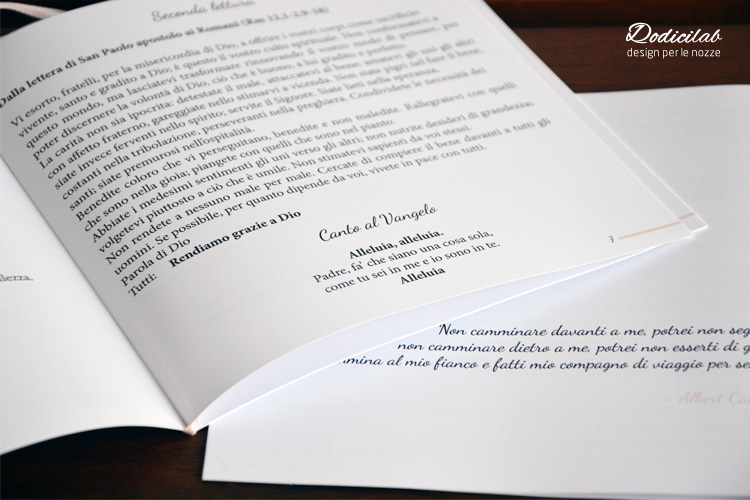 Dodicilab
design per le nozze
Seconda lettura
Dalla lettera di San Paolo apostolo ai Romani (Rm 12,1-2.9-18)
Vi esorto, fratelli, per la misericordia di Dio, a offrire i vostri corpi come sacrificio
vivente, santo e gradito a Dio; è questo il vostro culto spirituale. Non conformatevi a
questo mondo, ma lasciatevi trasformare rinnovando il vostro modo di pensare, per
poter discernere la volontà di Dio, ciò che è buono, a lui gradito e perfetto.
La carità non sia ipocrita: detestate il male, attaccatevi al bene; amatevi gli uni gli altri
con affetto fraterno, gareggiate nello stimarvi a vicenda. Non siate pigri nel fare il bene,
siate invece ferventi nello spirito; servite il Signore. Siate lieti nella speranza,
costanti nella tribolazione, perseveranti nella preghiera. Condividete le necessità dei
santi; siate premurosi nell'ospitalità.
Benedite coloro che vi perseguitano, benedite e non maledite. Rallegratevi con quelli
che sono nella gioia; piangete con quelli che sono nel pianto.
Abbiate i medesimi sentimenti gli uni verso gli altri; non nutrite desideri di grandezza;
volgetevi piuttosto a ciò che è umile. Non stimatevi sapienti da voi stessi.
Non rendete a nessuno male per male. Cercate di compiere il bene davanti a tutti gli
uomini. Se possibile, per quanto dipende da voi, vivete in pace con tutti.
Parola di Dio
Tutti: Rendiamo grazie a Dio
Canto al Vangelo
Alleluia, alleluia.
Padre, fa' che siano una cosa sola,
come tu sei in me e io sono in te.
Alleluia
7
lezza.
Non camminare davanti a me, potrei non seg
non camminare dietro a me, potrei non esserti di g
mmina al mio fianco e fatti mio compagno di viaggio per se
- Albert Ca